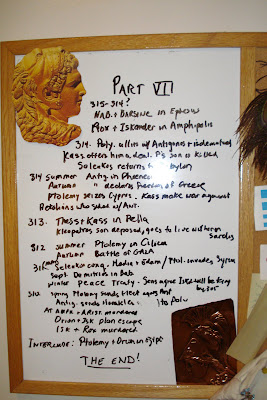 PART VII
315-314?
NAB. + BARSINE in Ephesus
Rox + Iskander in Amphipolis
314. Poly. allies w/ Antigonos + is demoted
Kass offers him a deal. P's son is killed
Seleukos returns to Babylon
314 Summer Antig. in Phoenicia
Autumn " declares freedom of Greece
Ptolemy seizes Cyprus. Kass make war against
Aetolians who sided w/ Ant.
313. Thess + Kass in Pella
Kleopatra's son deposed, goes to live w/ her in
Sardis
312 Summer Ptolemy in Cilicia
Autumn Battle of Gaza
311 Seleukos conq. Media + Elam / Ptol. invades Syria
Sept. Demitrios in Bab.
Winter Peace Treaty. Sens agree Isk will be king
by 305
310 Spring Ptolemy sends fleet against
Antig. sends Herakles
to Poly
At AMPH + ARIST. murdered
Orion + Isk plan escape
Isk + Rox murdered
INTERLUDE: Ptolemy + Orion in Egypt
THE END!